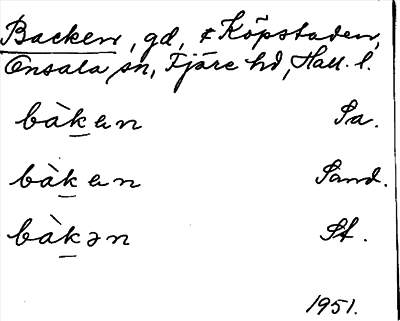 Backen, gd, ¢ Köpstaden,
Onsala sn, Fjäre hd, Hall. l.
bàkan Sa.
bàkan Sand.
bàkən St.
1951.